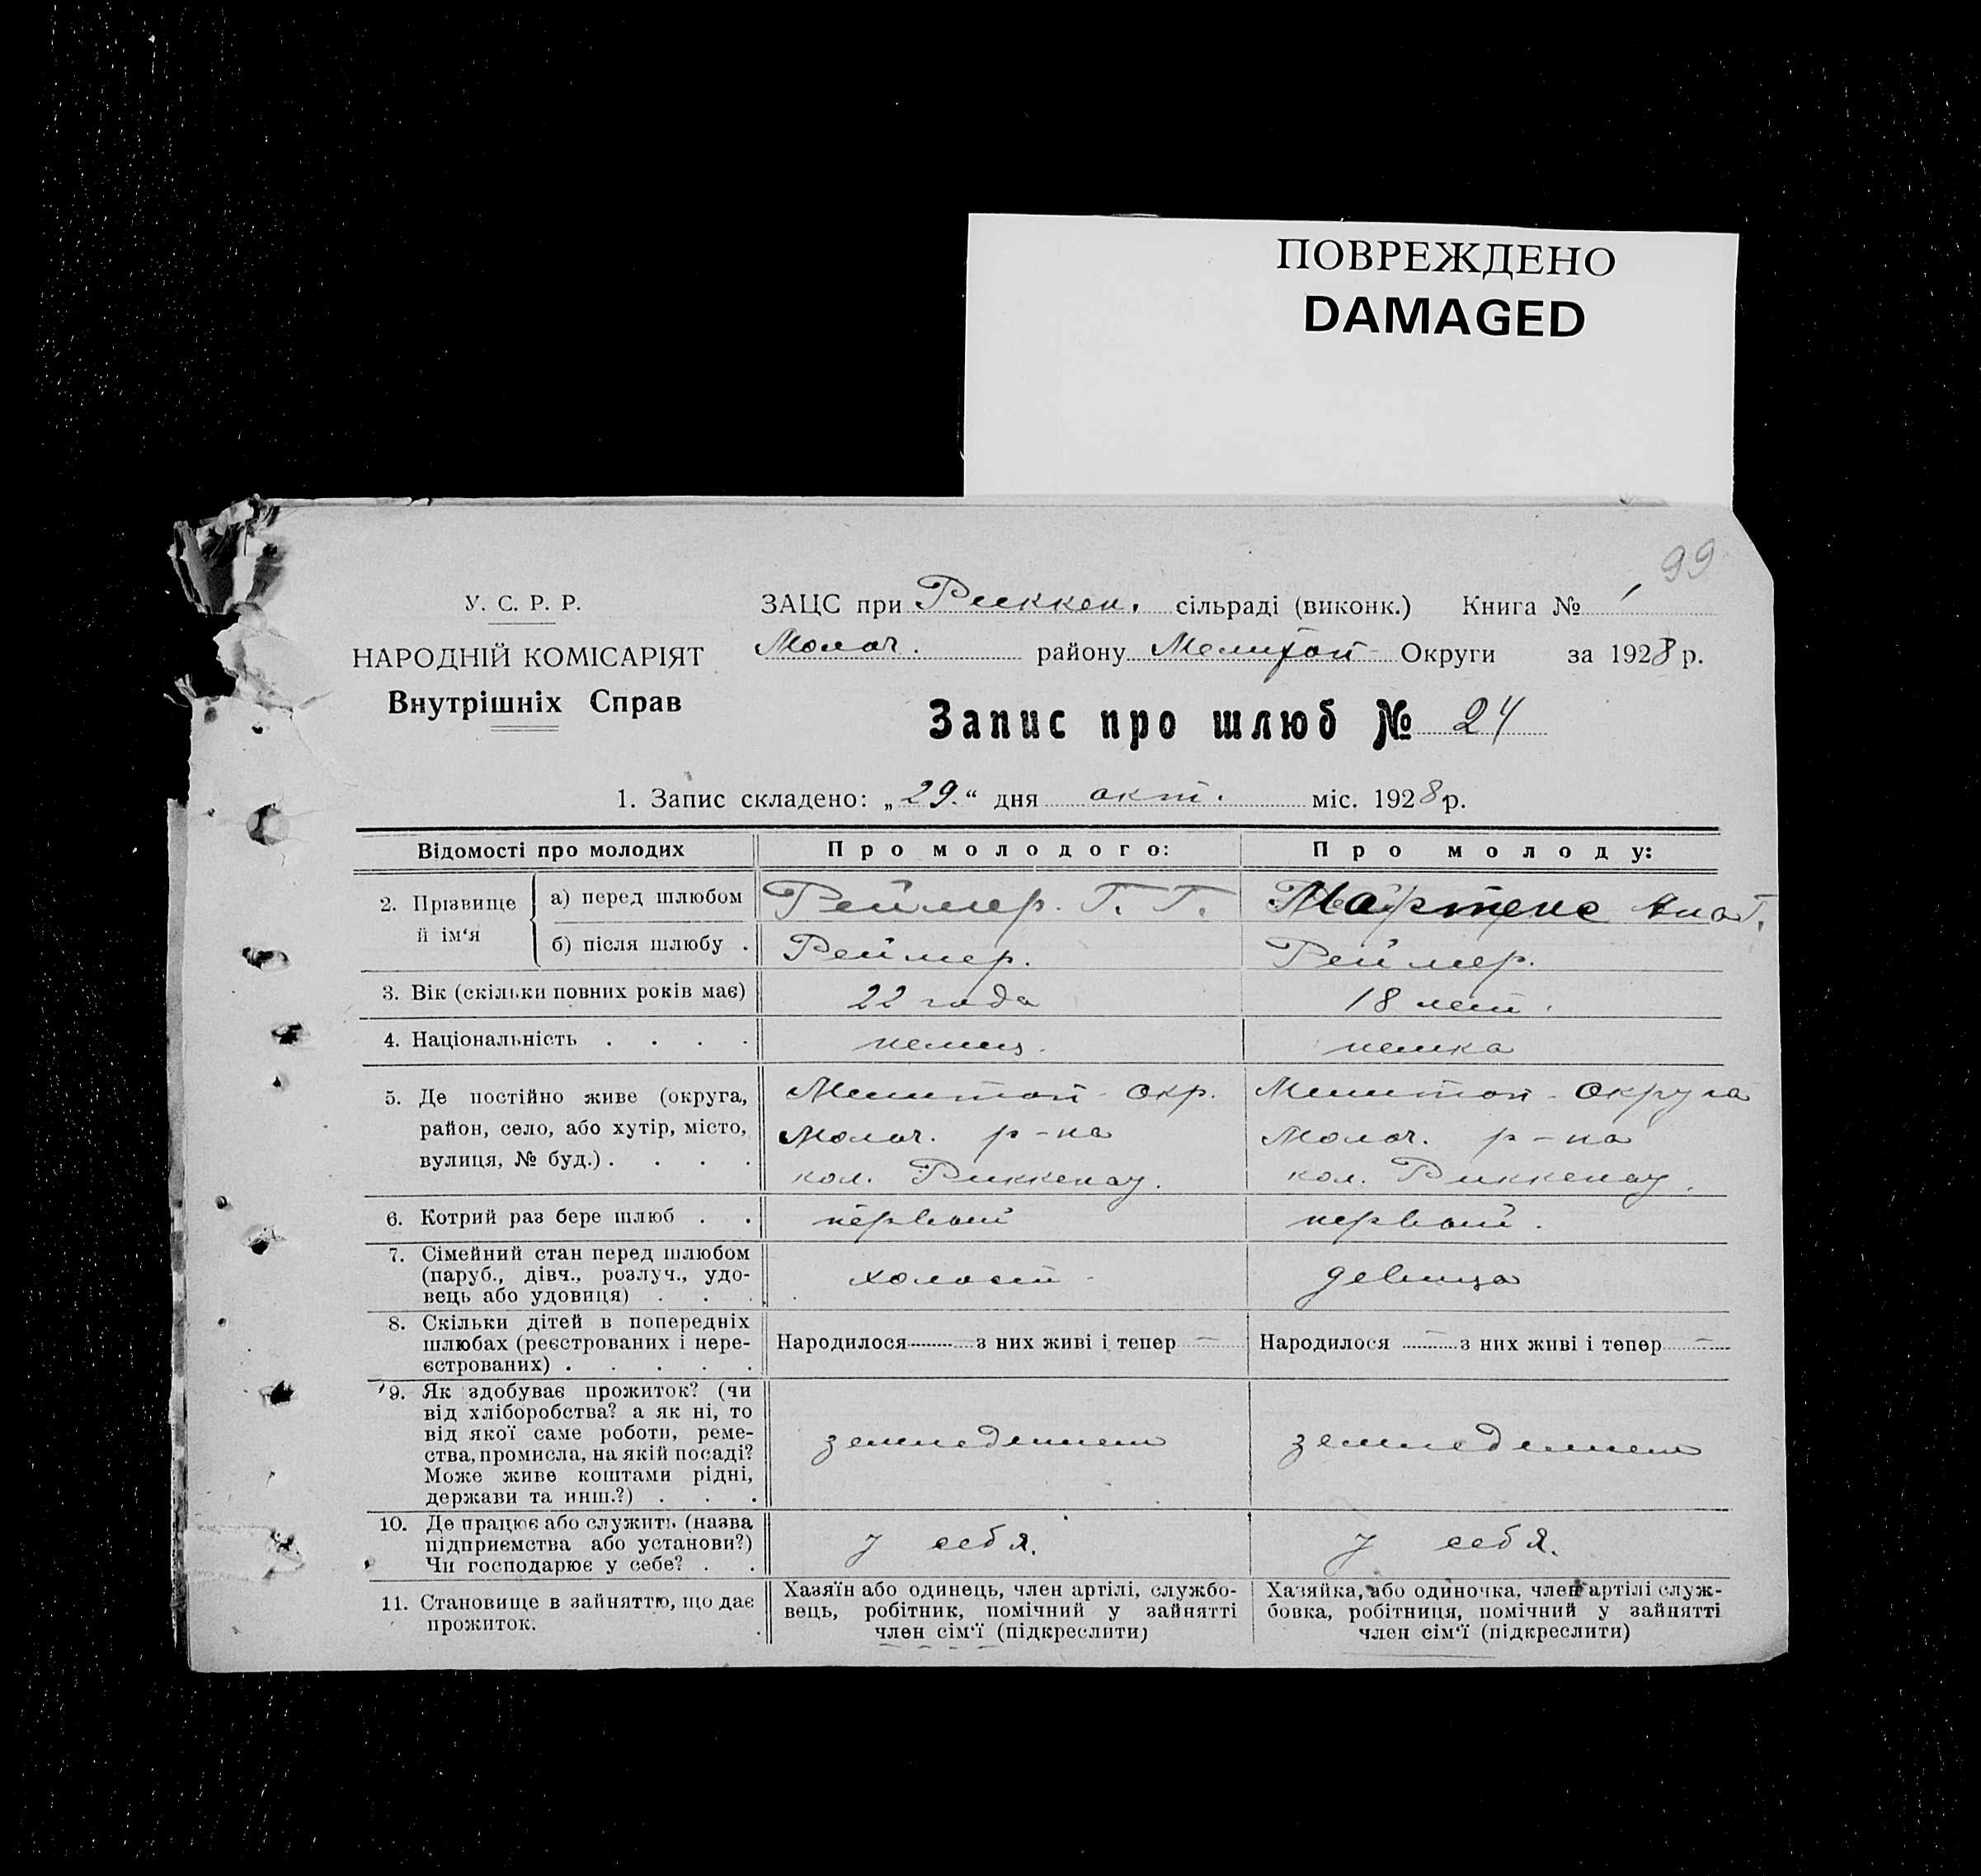 ПОВРЕЖДЕНО
DAMAGED
99
У. С. Р. Р.
ЗАЦС при Риккен. сільраді (виконк.) Книга № 1
НАРОДНІЙ КОМІСАРІЯТ
Молоч. району Мелитоп Округи за 1928 р.
Внутрішніх Справ
Запис про шлюб № 24
1. Запис складено: „29.“ дня окт. міс. 1928 р.
Відомості про молодих Про молодого: Про молоду:
2. Прізвище й ім‘я а) перед шлюбом Реймер. Г. Г. Мартенс
б) після шлюбу . Реймер. Реймер.
3. Вік (скільки повних років має) 22 года 18 лет.
4. Національність . . . . немец. немка
5. Де постійно живе (округа, Мелитоп - окр. Мелитоп - округа
район, село, або хутір, місто, Молоч. р-на Молоч. р-на
вулиця, № буд.) . . . . кол. Риккенау. кол. Риккенау.
6. Котрий раз бере шлюб . . первый первый.
7. Сімейний стан перед шлюбом
(паруб., дівч., розлуч., удо- холост - девица
вець або удовиця) . . .
8. Скільки дітей в попередніх
шлюбах (реєстрованих і нере- Народилося з них живі і тепер — Народилося — з них живі і тепер —
єстрованих) . . . . .
9. Як здобуває прожиток? (чи
від хліборобства? а як ні, то
від якої саме роботи, реме- земледелием земледелием
ства, промисла, на якій посаді?
Може живе коштами рідні,
держави та инш.?) . . .
10. Де працює або служить (назва
підприємства або установи?) у себя. у себя.
Чи господарює у себе? . .
11. Становище в зайняттю, що дає Хазяїн або одинець, член артілі, службо- Хазяйка, або одиночка, член артілі служ-
прожиток. вець, робітник, помічний у зайнятті бовка, робітниця, помічний у зайнятті
член сім‘ї (підкреслити) член сім‘ї (підкреслити)